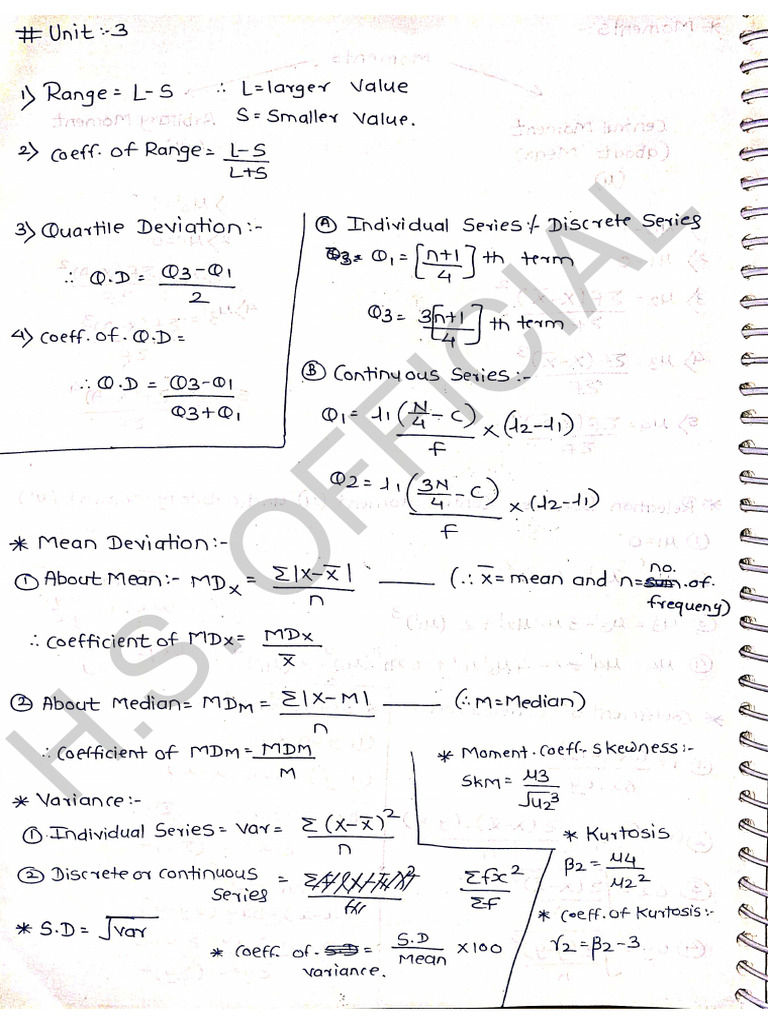 # Unit:-3
1) Range = L-S ∴ L=larger value
S = Smaller value.
2) coeff. of Range = L-S / L+S
3) Quartile Deviation:-
∴ Q.D = Q3-Q1 / 2
4) coeff. of. Q.D =
∴ Q.D = Q3-Q1 / Q3+Q1
(A) Individual Series:/- Discrete Series
Q1 = [n+1 / 4] th term
Q3 = 3[n+1 / 4] th term
(B) Continuous Series:-
Q1 = l1 (N/4 - C) / f × (l2-l1)
Q2 = l1 (3N/4 - C) / f × (l2-l1)
* Mean Deviation:-
① About Mean:- MDx = Σ|x-x̄| / n —— (∴ x̄ = mean and n = no. of. frequeny)
∴ coefficient of MDx = MDx / x̄
② About Median = MDM = Σ|x-M| / n —— (∴ M=Median)
∴ coefficient of MDM = MDM / M
* Variance:-
① Individual Series = var = Σ(x-x̄)² / n
② Discrete or continuous series = Σfx² / Σf
* S.D = √var
* coeff. of. variance. = S.D / Mean × 100
* Moment. coeff- skewness:-
SkM = μ3 / √μ2³
* Kurtosis
β2 = μ4 / μ2²
* coeff. of Kurtosis:-
γ2 = β2-3
H.S. OFFICIAL